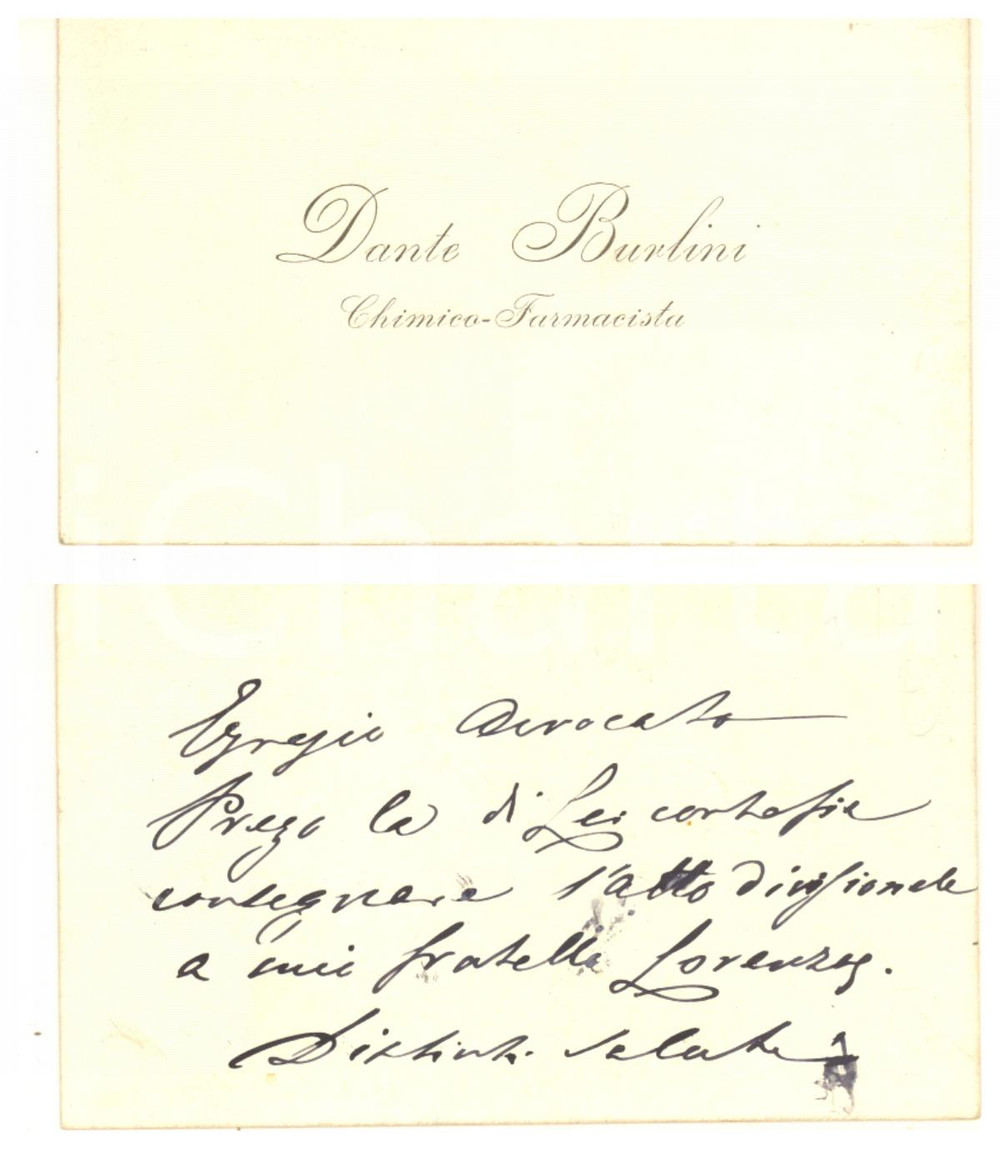 Dante Burlini
Chimico-Farmacista
iCharta
Egregio Avvocato
Prego la di Lei cortesia
consegnare l'atto divisionale
a mio fratello Lorenzo.
Distinti saluti